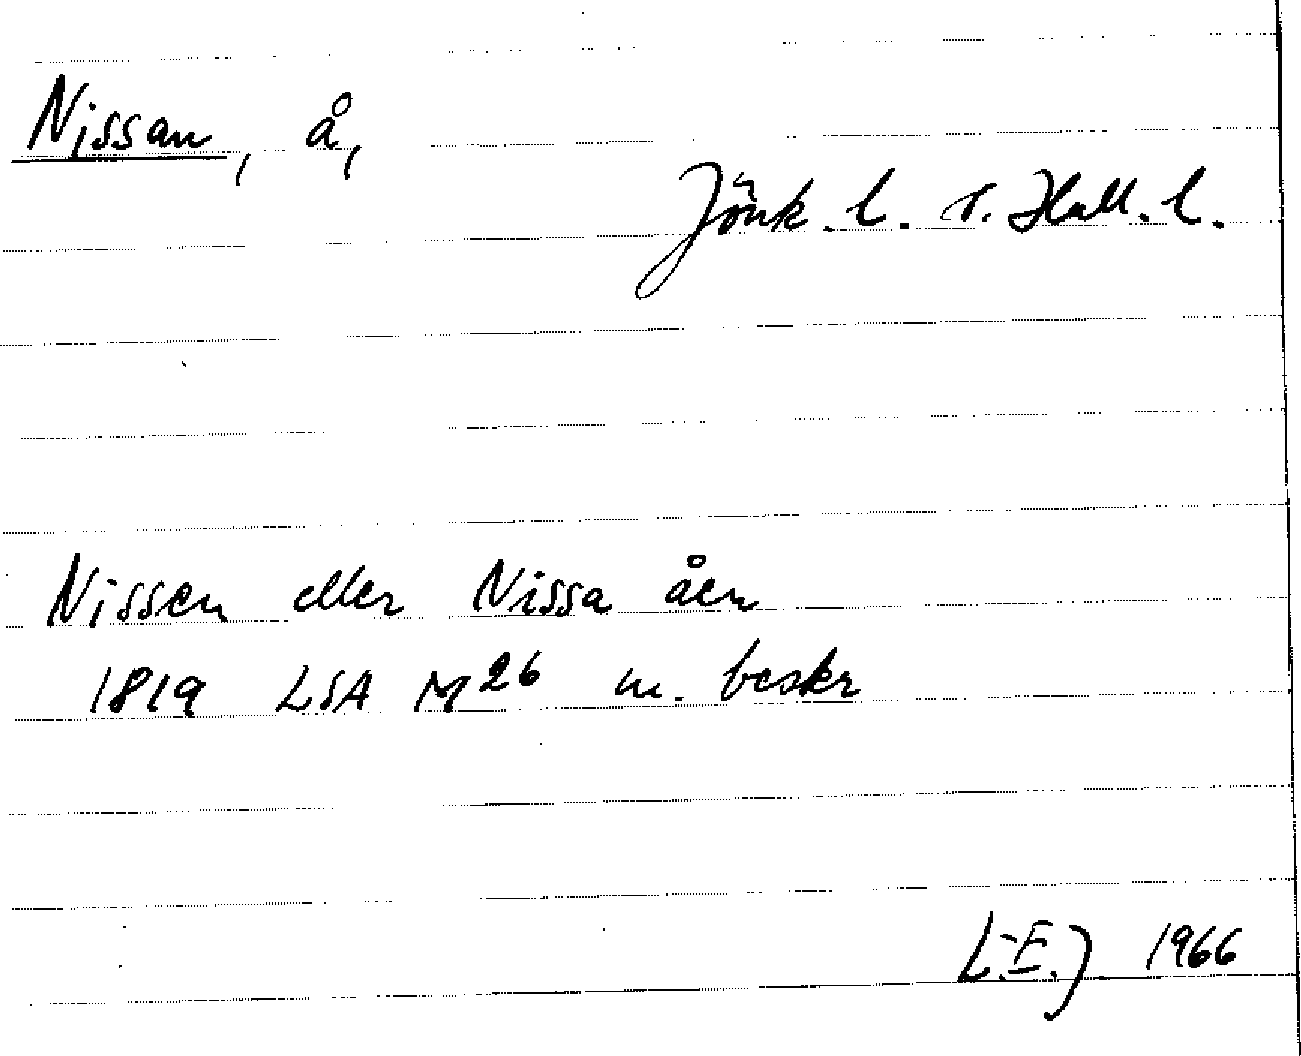 Nissan, å,
Jönk. l. o. Hall. l.
Nissen eller Nissa åen
1819 LSA M26 m. beskr
L.E.J 1966